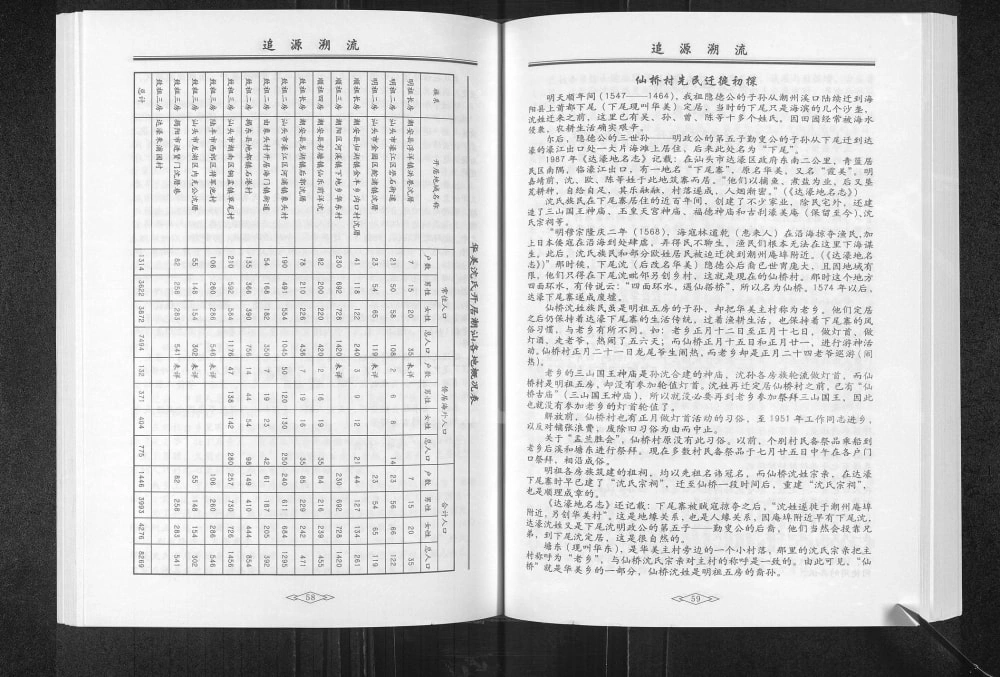 追 源 溯 流
华美沈氏开居潮汕各地概况表
族系 开居地域名称 常住人口 侨居海外人口 合计人口
户数 男性 女性 总人口 户数 男性 女性 总人口 户数 男性 女性 总人口
明祖长房 潮安县浮洋镇洪巷沈厝 7 15 20 35 未详 7 15 20 35
明祖二房 汕头市濠江区岩石街道 21 50 58 108 2 6 8 14 23 56 66 122
明祖二房 汕头市金园区鮀浦镇沈厝 23 54 65 119 未详 23 54 65 119
顺祖长房 潮安县归湖镇金丰乡沟口村沈厝 41 118 122 240 3 9 12 21 44 127 134 261
顺祖三房 潮阳区河溪镇下地乡华东村 230 692 728 1420 未详 230 692 728 1420
顺祖四房 潮安县彩塘镇仙乐前洋沈 82 200 220 420 2 16 19 35 84 216 239 455
殷祖长房 潮安县龙湖镇后郭沈厝 78 210 226 436 7 19 16 35 85 229 242 471
殷祖二房 汕头市濠江区河浦镇象头村 190 491 554 1045 50 120 130 250 240 611 684 1295
殷祖二房 由象头村开居海门镇街道 54 168 182 350 7 19 23 42 61 187 205 392
殷祖三房 揭东县地都镇石潭村 135 366 390 756 14 44 54 98 149 410 444 854
殷祖二房 汕头市潮南区铜盂镇草尾村 210 592 584 1176 47 138 142 280 257 730 726 1456
殷祖二房 陆丰市西部区将军沈村 106 260 286 546 未详 106 260 286 546
殷祖二房 汕头市龙湖区内充公沈厝 55 148 154 302 未详 55 148 154 302
殷祖三房 揭阳市进贤门沈厝巷 82 258 283 541 未详 82 258 283 541
殷祖三房 达濠朱湖园村
总计 1314 3622 3872 7494 132 371 404 775 1446 3993 4276 8269
58
追 源 溯 流
仙桥村先民迁徙初探
明天顺年间（1547——1464），我祖隐德公的子孙从潮州溪口陆续迁到海
阳县上莆都下尾（下尾现叫华美）定居，当时的下尾只是海滨的几个沙垄，
沈姓迁来之前，这里已有吴、孙、曾、陈等十多个姓氏。因田园经常被海水
侵袭，农耕生活确实艰辛。
尔后，隐德公的三世孙——明政公的第五子勤叟公的子孙从下尾迁到达
濠的濠江出口处一大片海滩上居住，后来此处名为“下尾”。
1987年《达濠地名志》记载：在汕头市达濠区政府东南二公里，青蓝居
民区南隅，临濠江出口，有一地名“下尾寨”，原名华美，又名“霞美”。明
嘉靖前，沈、欧、陈等姓于此地筑寨而居，“他们以捕鱼，煮盐为业，后又垦
荒耕种，自给自足，其乐融融，村落遂成，人烟渐密。”（《达濠地名志》）
沈氏族民在下尾寨居住的近百年间，创建了不少家业，除民宅外，还建
造了三山国王神庙、玉皇天宫神庙、福德神庙和古刹濠美庵（保留至今），沈
氏宗祠等。
“明穆宗隆庆二年（1568），海寇林道乾（惠来人）在沿海掠夺渔民，加
上日本倭寇在沿海到处肆虐，弄得民不聊生，渔民们根本无法在这里下海谋
生。此后，沈氏族民和部分欧姓居民被迫迁徙到潮州庵埠附近。（《达濠地名
志》）”那时候，下尾沈（后改名华美）隐德公后裔已世育庞大，且因地域有
限，他们只得在下尾沈毗邻另创乡村，这就是现在的仙桥村。那时这个地方
四面环水，有传说云：“四面环水，遇仙搭桥”，所以名为仙桥。1574年以后，
达濠下尾寨遂成废墟。
仙桥沈姓族民虽是明祖五房的子孙，却把华美主村称为老乡。他们定居
之后仍保持着达濠下尾寨的生活传统，过着渔耕生活，也保持着下尾寨的风
俗习惯，与老乡有所不同。如：老乡正月十二日至正月十七日，做灯首、做
灯酒、走老爷，热闹了五六天；而仙桥正月十五日和正月廿一，进行游神活
动，仙桥村正月二十一日龙尾爷生闹热，而老乡却是正月二十四老爷巡游（闹
热）。
老乡的三山国王神庙是孙沈合建的神庙，沈孙各房族轮流做灯首，而仙
桥村是明祖五房，却没有参加轮值灯首。沈姓再迁定居仙桥村之前，已有“仙
桥古庙”（三山国王神庙），所以就没必要再到老乡参加祭拜三山国王，因此
也就没有参加老乡的灯首轮值了。
解放前，仙桥村也有正月做灯首活动的习俗，至1951年工作同志进乡，
以反对铺张浪费，废除旧习俗为由而中止。
关于“盂兰胜会”，仙桥村原没有此习俗。以前，个别村民备祭品乘船到
老乡后溪和塘东进行祭拜。现在多数村民备祭品于七月廿五日中午在各户门
口祭拜，相沿成俗。
明祖各房族筑建的祖祠，均以先祖名讳冠名，而仙桥沈姓宗亲，在达濠
下尾寨时早已建了“沈氏宗祠”，迁至仙桥一段时间后，重建“沈氏宗祠”，
也是顺理成章的。
《达濠地名志》还记载：下尾寨被贼寇掠夺之后，“沈姓遂徙于潮州庵埠
附近，另创华美村”。这是地缘关系，也是人缘关系，因庵埠附近早有下尾沈，
达濠沈姓又是下尾沈明政公的第五子——勤叟公的后裔，他们当然会投靠兄
弟，到下尾沈定居，这是很自然的。
塘东（现叫华东），是华美主村旁边的一个小村落，那里的沈氏宗亲把主
村称呼为“老乡”，与仙桥沈氏宗亲对主村的称呼是一致的。由此可见，“仙
桥”就是华美乡的一部分，仙桥沈姓是明祖五房的裔孙。
59